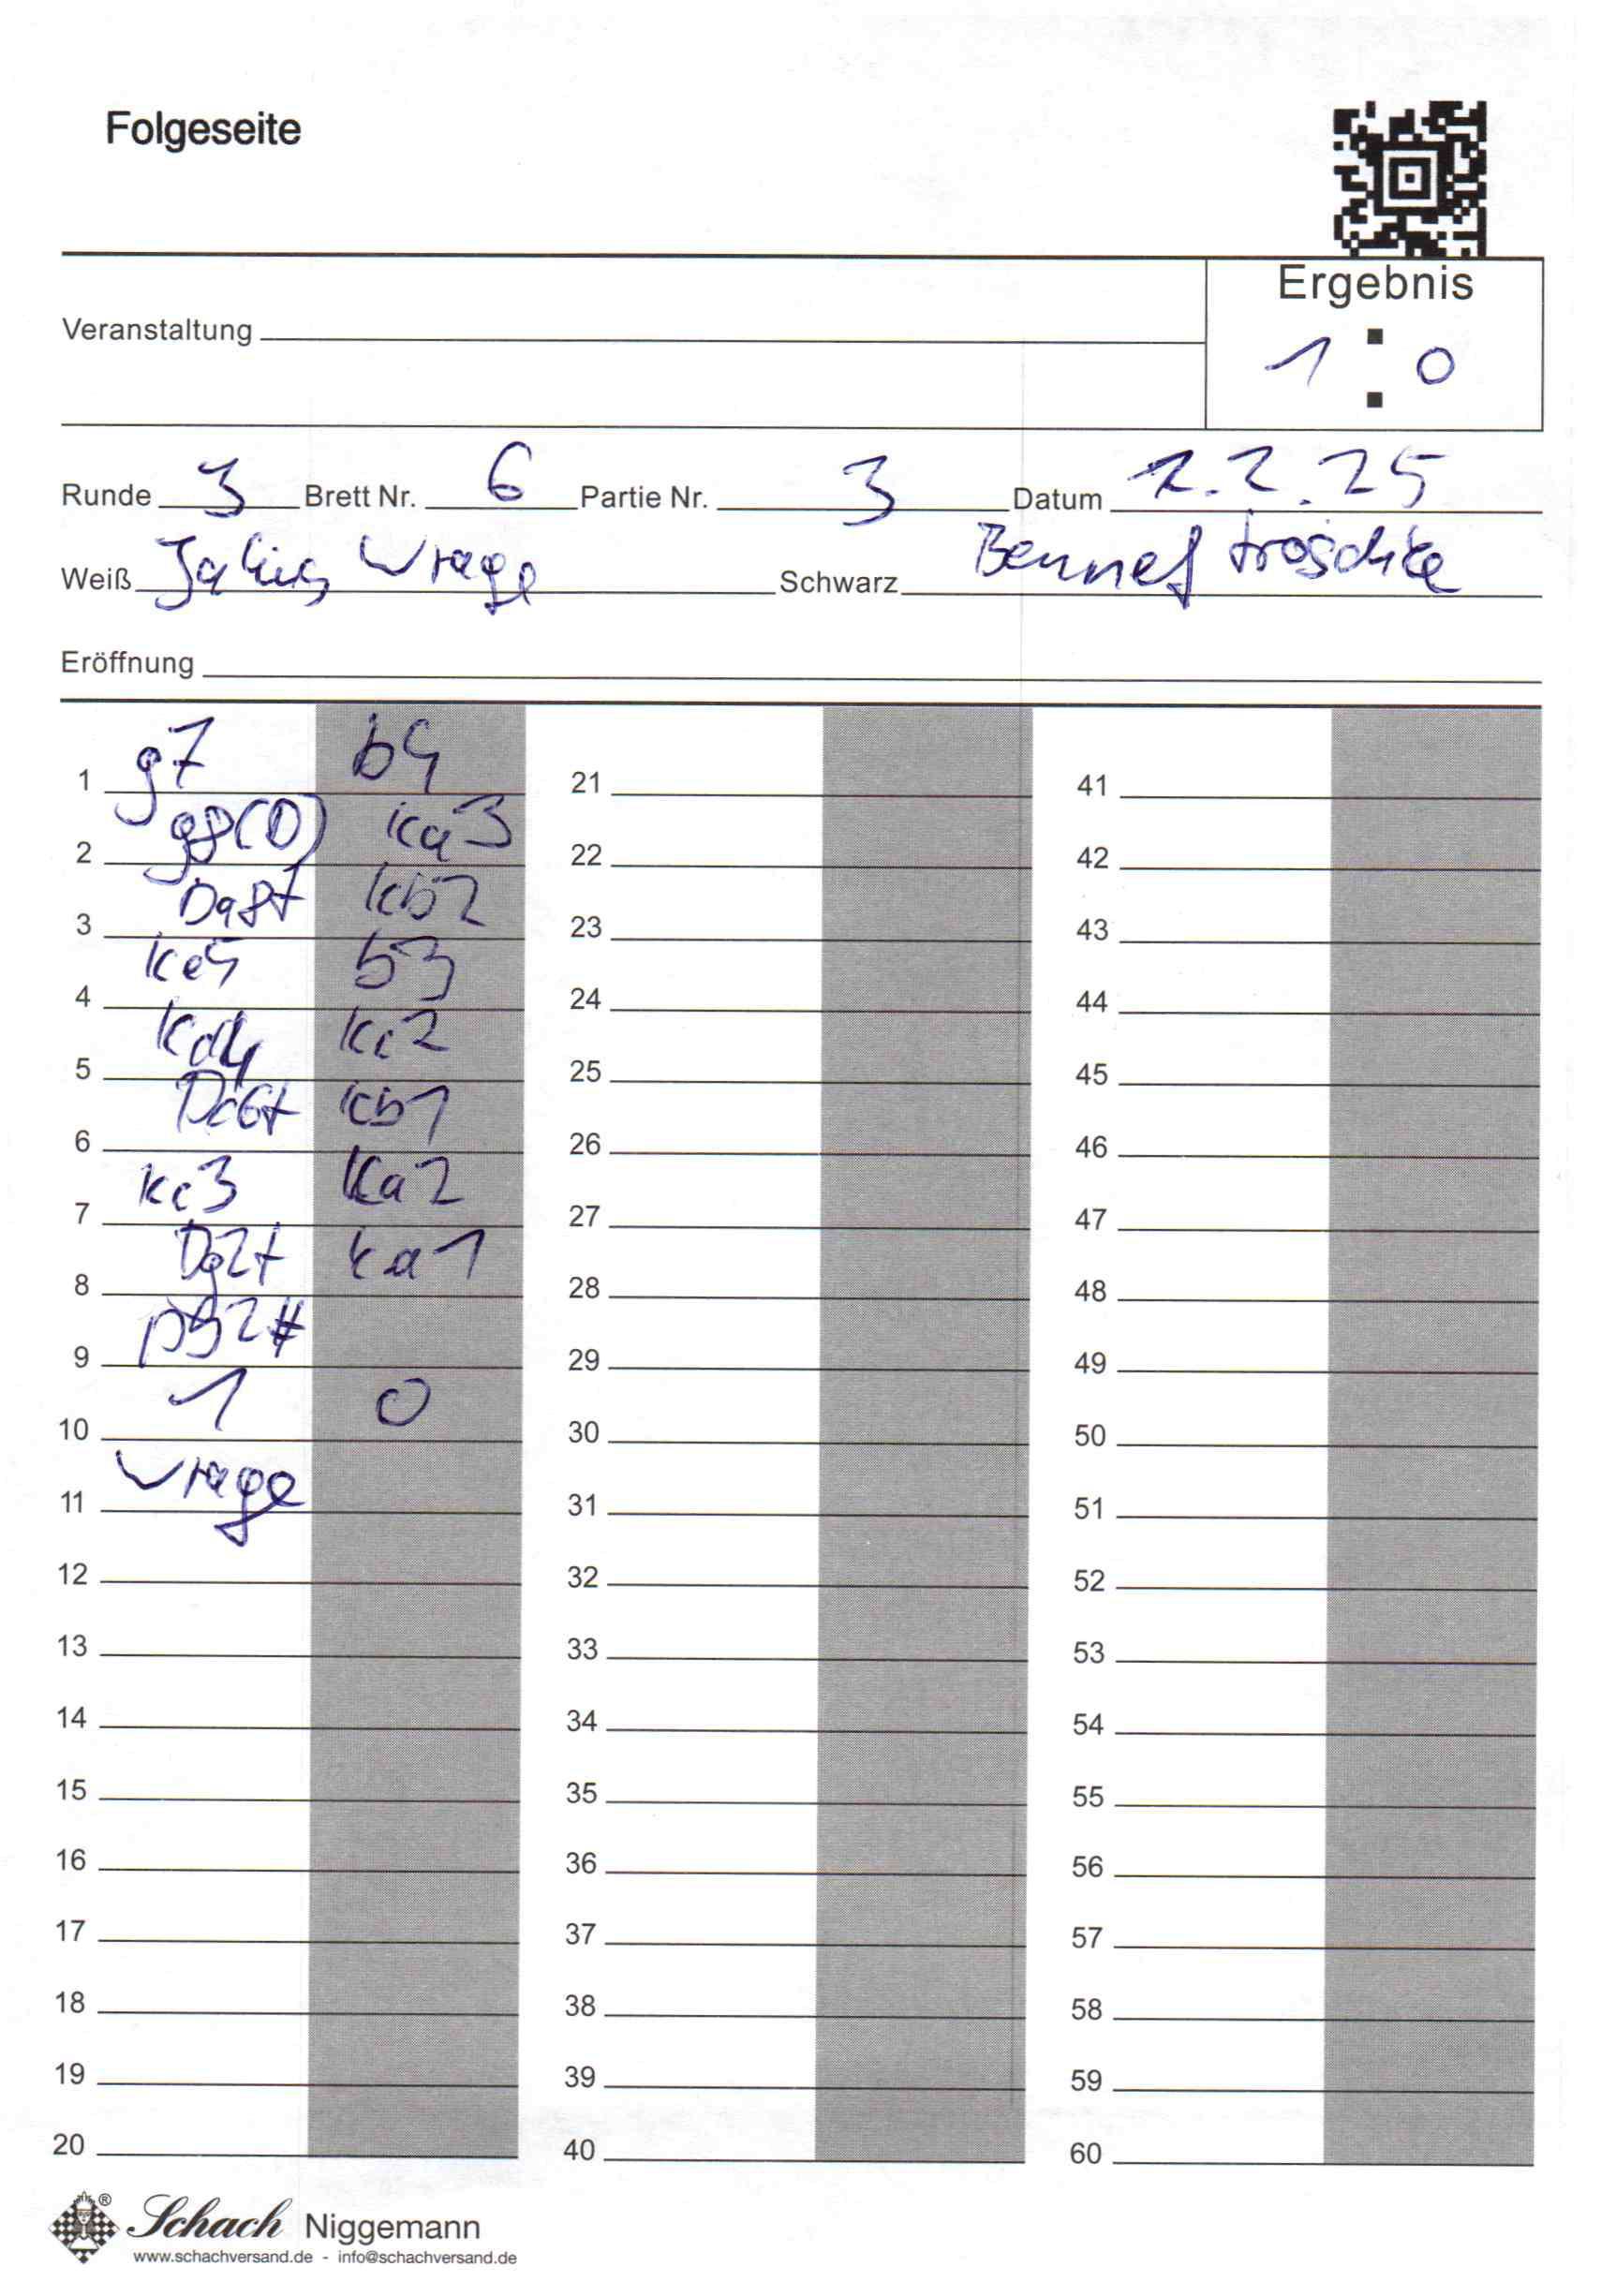 Folgeseite
Ergebnis
Veranstaltung
1 : 0
Runde 3 Brett Nr. 6 Partie Nr. 3 Datum 2.2.25
Weiß Julius Wrage Schwarz Bennet tröschke
Eröffnung
1 g7 b4 21 41
2 g8(D) Ka3 22 42
3 Da8+ Kb2 23 43
4 Ke5 b3 24 44
5 Kd4 Kc2 25 45
6 Dc6+ Kb1 26 46
7 Kc3 Ka2 27 47
8 Dg2+ Ka1 28 48
9 Db2# 29 49
10 1 0 30 50
11 Wrage 31 51
12 32 52
13 33 53
14 34 54
15 35 55
16 36 56
17 37 57
18 38 58
19 39 59
20 40 60
® Schach Niggemann
www.schachversand.de - info@schachversand.de